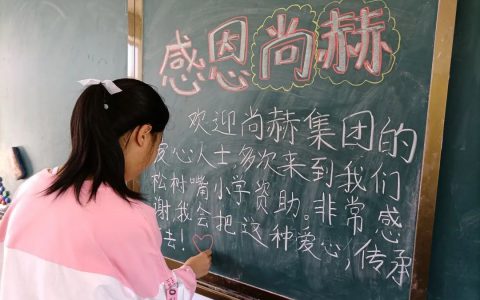 感恩尚赫
欢迎尚赫集团的
爱心人士多次来到我们
松树嘴小学资助。非常感
谢,我会把这种爱心,传承
去!